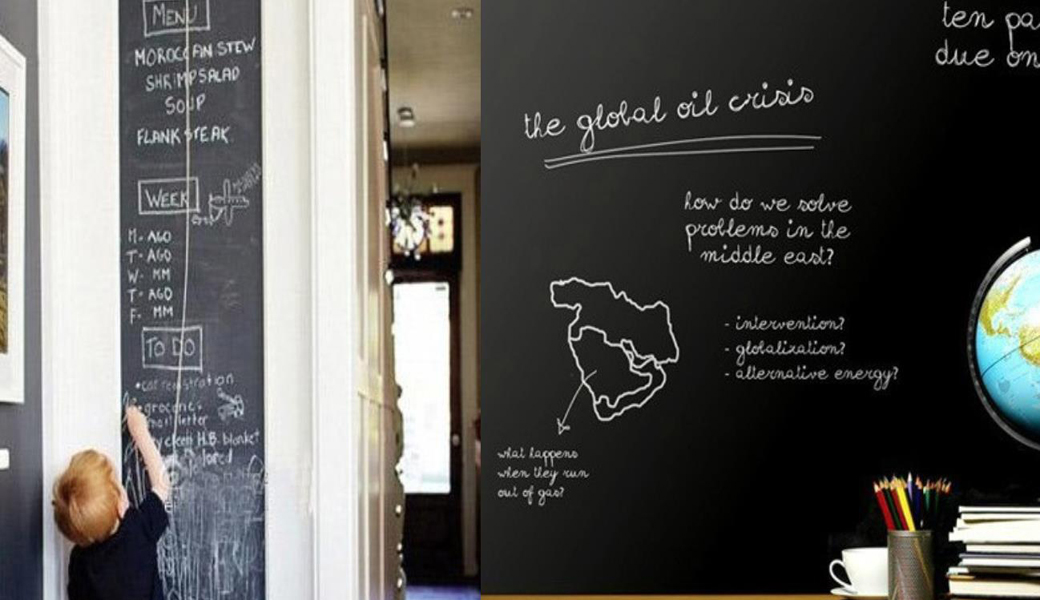 MENU
MOROCCAN STEW
SHRIMP SALAD
SOUP
FLANK STEAK
WEEK
M- AGO
T- AGO
W- MM
T- AGO
F- MM
TO DO
• car registration
groceries
mail letter
clean H.B. blanket
ten pa
due on
the global oil crisis
how do we solve
problems in the
middle east?
- intervention?
- globalization?
- alternative energy?
what happens
when they run
out of gas?